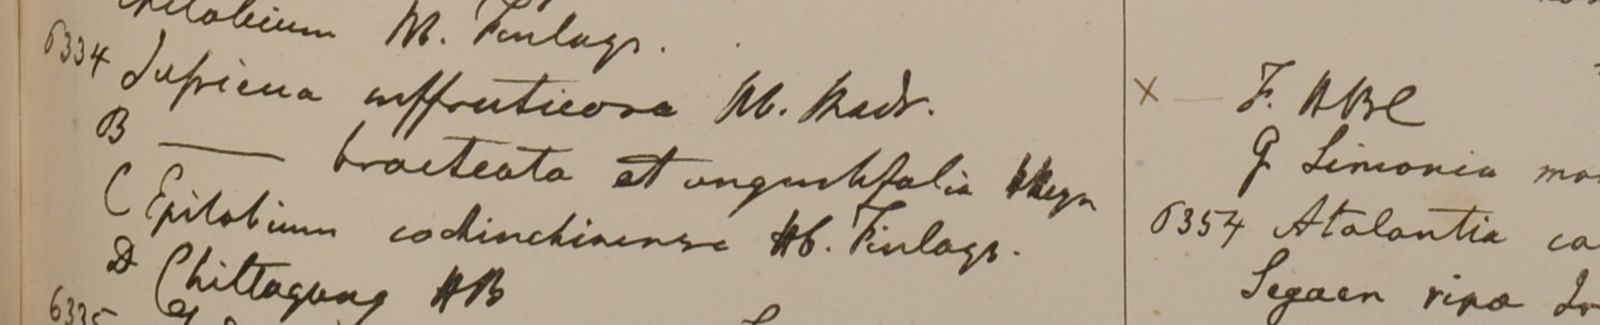 Epilobium Hb. Finlays.
6334 Jussieua suffruticosa Hb. Madr.
B ——— bracteata et angustifolia HHeyn
C Epilobium cochinchinense Hb. Finlays.
D Chittagong HB
6335
X — F. HBC
G Limonia
6354 Atalantia
Segaen ripa